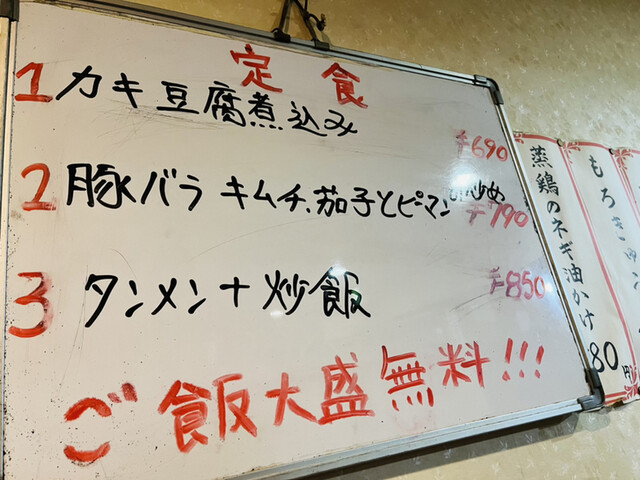 定食
1 カキ豆腐煮込み
¥690
2 豚バラ キムチ、茄子とピーマン の炒め
¥790
3 タンメン+炒飯
¥850
ご飯大盛無料!!!
蒸鶏のネギ油かけ
80円
もろきゅう